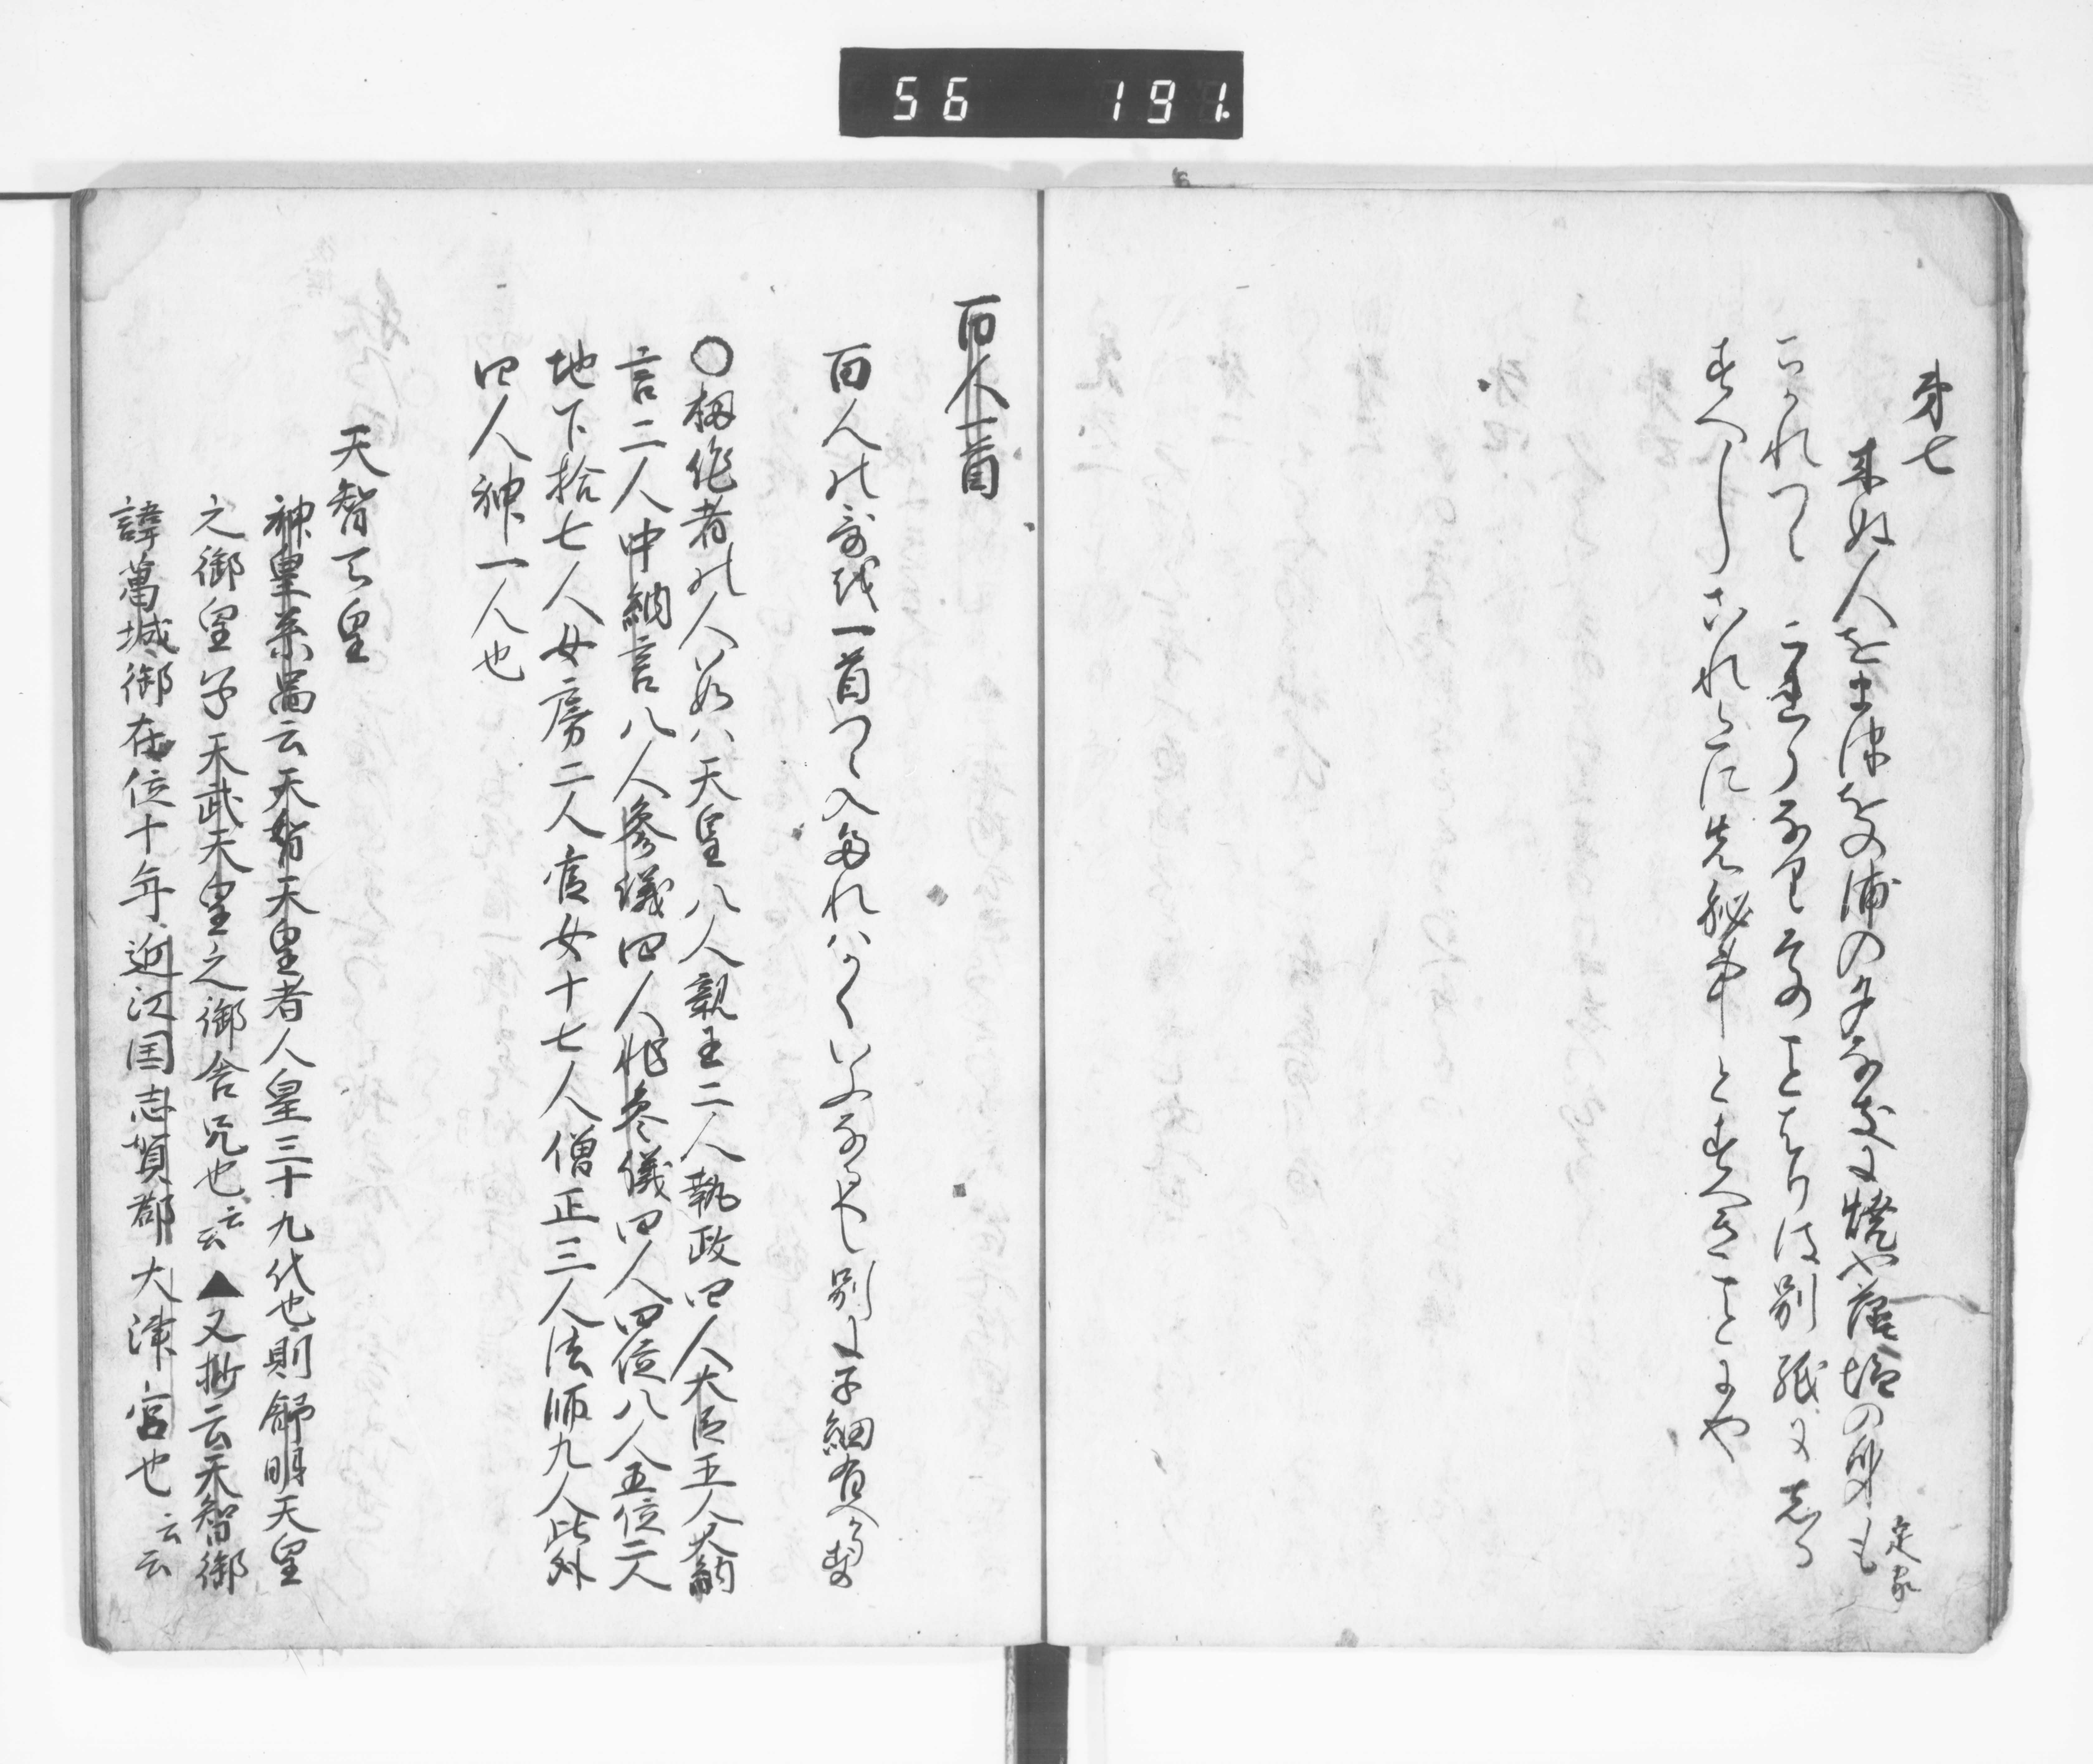 56 191
第七
来ぬ人を末つほの浦の夕なきに焼や藻塩の身も 定家
こかれつゝ 二逢う るり其ことはりは別紙に志る
すへし これらに先秘事とすへきことにや
百人一首
百人の哥越一首つゝ入多れはかくいふなるへし別に子細有へからす
〇抑作者の人数八天皇八人親王二人執政四人大臣五人大納
言二人中納言八人参議四人非参儀四人四位八人五位二人
地下拾七人女房二人官女十七人僧正三人法師九人此外
四人神一人也
天智天皇
神皇系図云天智天皇者人皇三十九代也則舒明天皇
之御皇子天武天皇之御舎兄也云云▲又抄云天智御
諱葛城御在位十年近江国志賀郡大津宮也云云